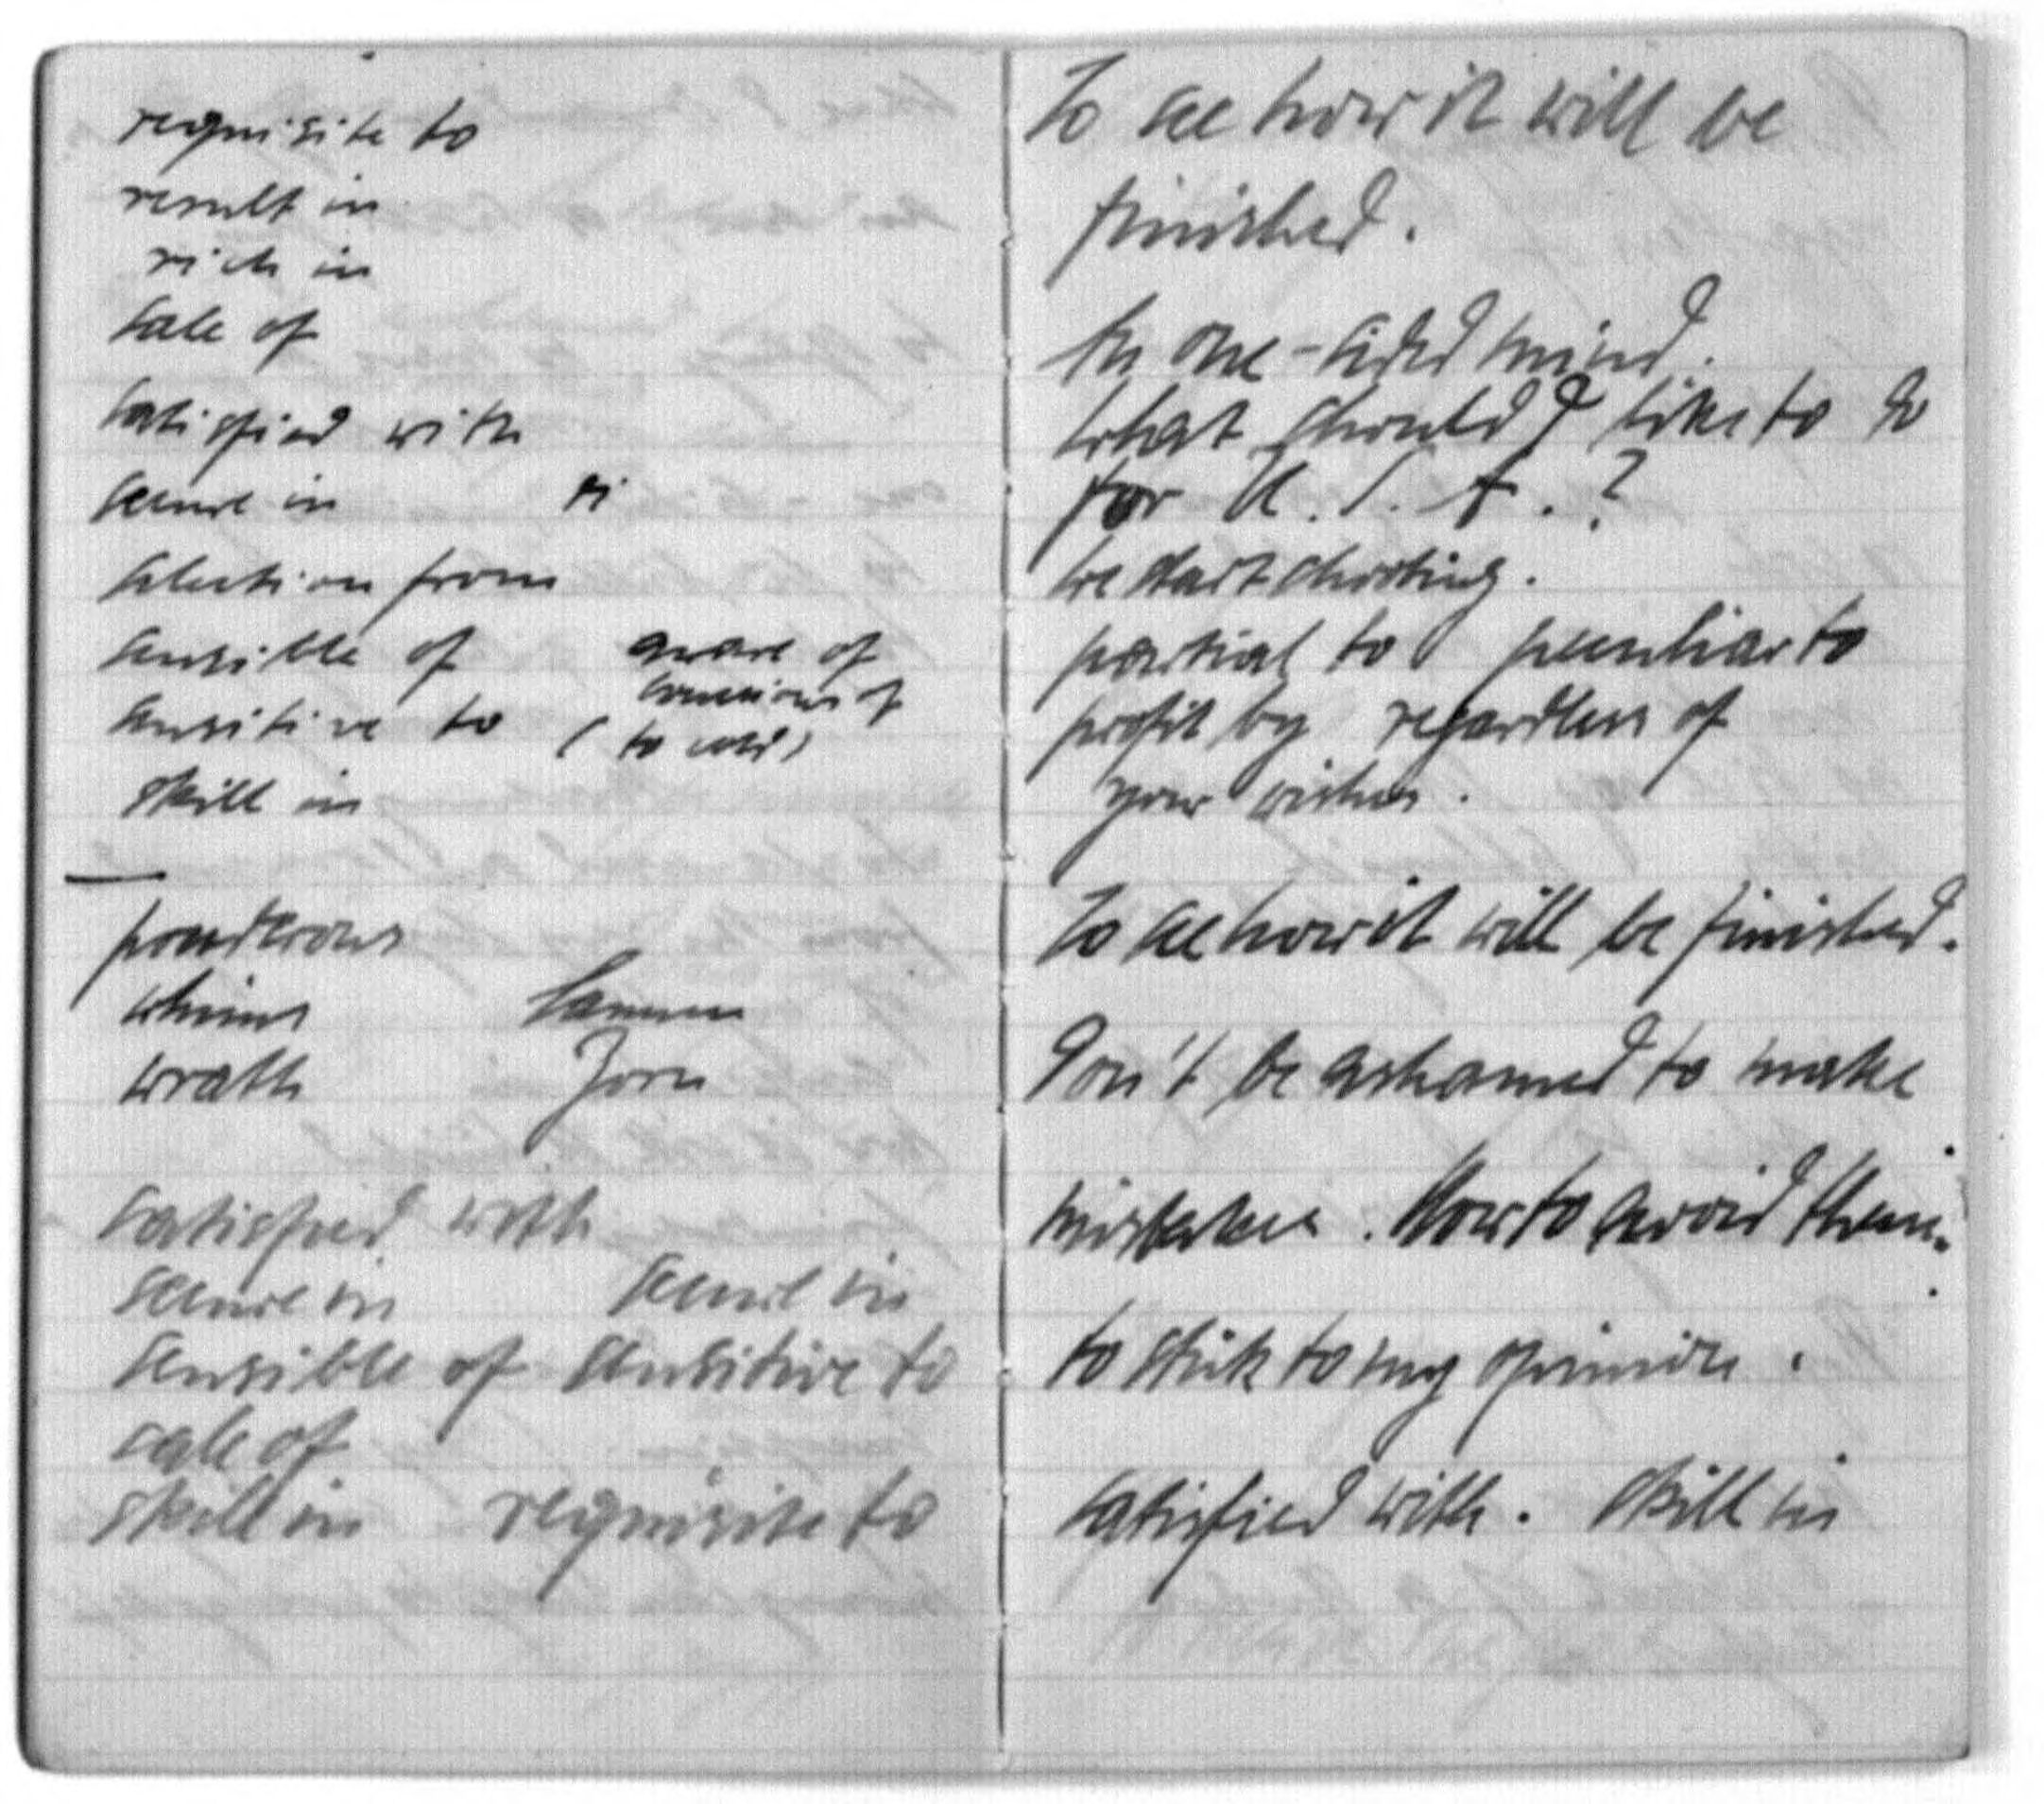 requisite to
result in
rich in
sale of
satisfied with
secure in si
selection from
sensible of aware of
conscious of
sensitive to ( to cold )
skill in
ponderous
whims Launen
wrath Zorn
satisfied with
secure in secure in
sensible of sensitive to
sale of
skill in requisite to
To see how it will be
finished.
one-sided mind.
What should I like to do
for U.S.A.?
We start shooting.
partial to peculiar to
profit by regardless of
your wishes.
To see how it will be finished.
Don't be ashamed to make
mistakes. How to avoid them.
to stick to my opinion.
satisfied with. skill in